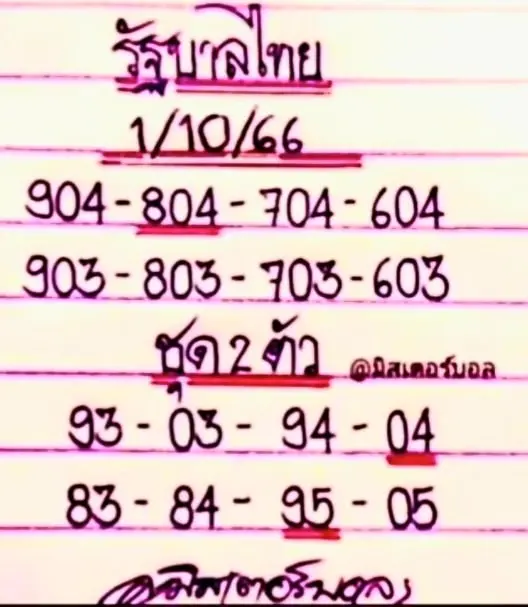 รัฐบาลไทย
1/10/66
904-804-704-604
903-803-703-603
ชุด 2 ตัว @มิสเตอร์บอล
93-03-94-04
83-84-95-05
มิสเตอร์บอล